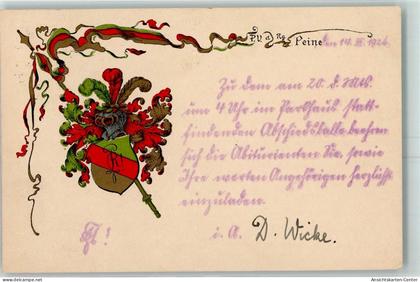 P.V. a. R. z. Peine, den 14. III. 1926.
Zu dem am 20. d. Mts.
um 4 Uhr im Parkhaus statt-
findenden Abschiedsballe beehren
sich die Abiturienten Sie, sowie
Ihre werten Angehörigen herzlichst
einzuladen.
i. A. D. Wicke.
oldthing.de
Ansichtskarten-Center